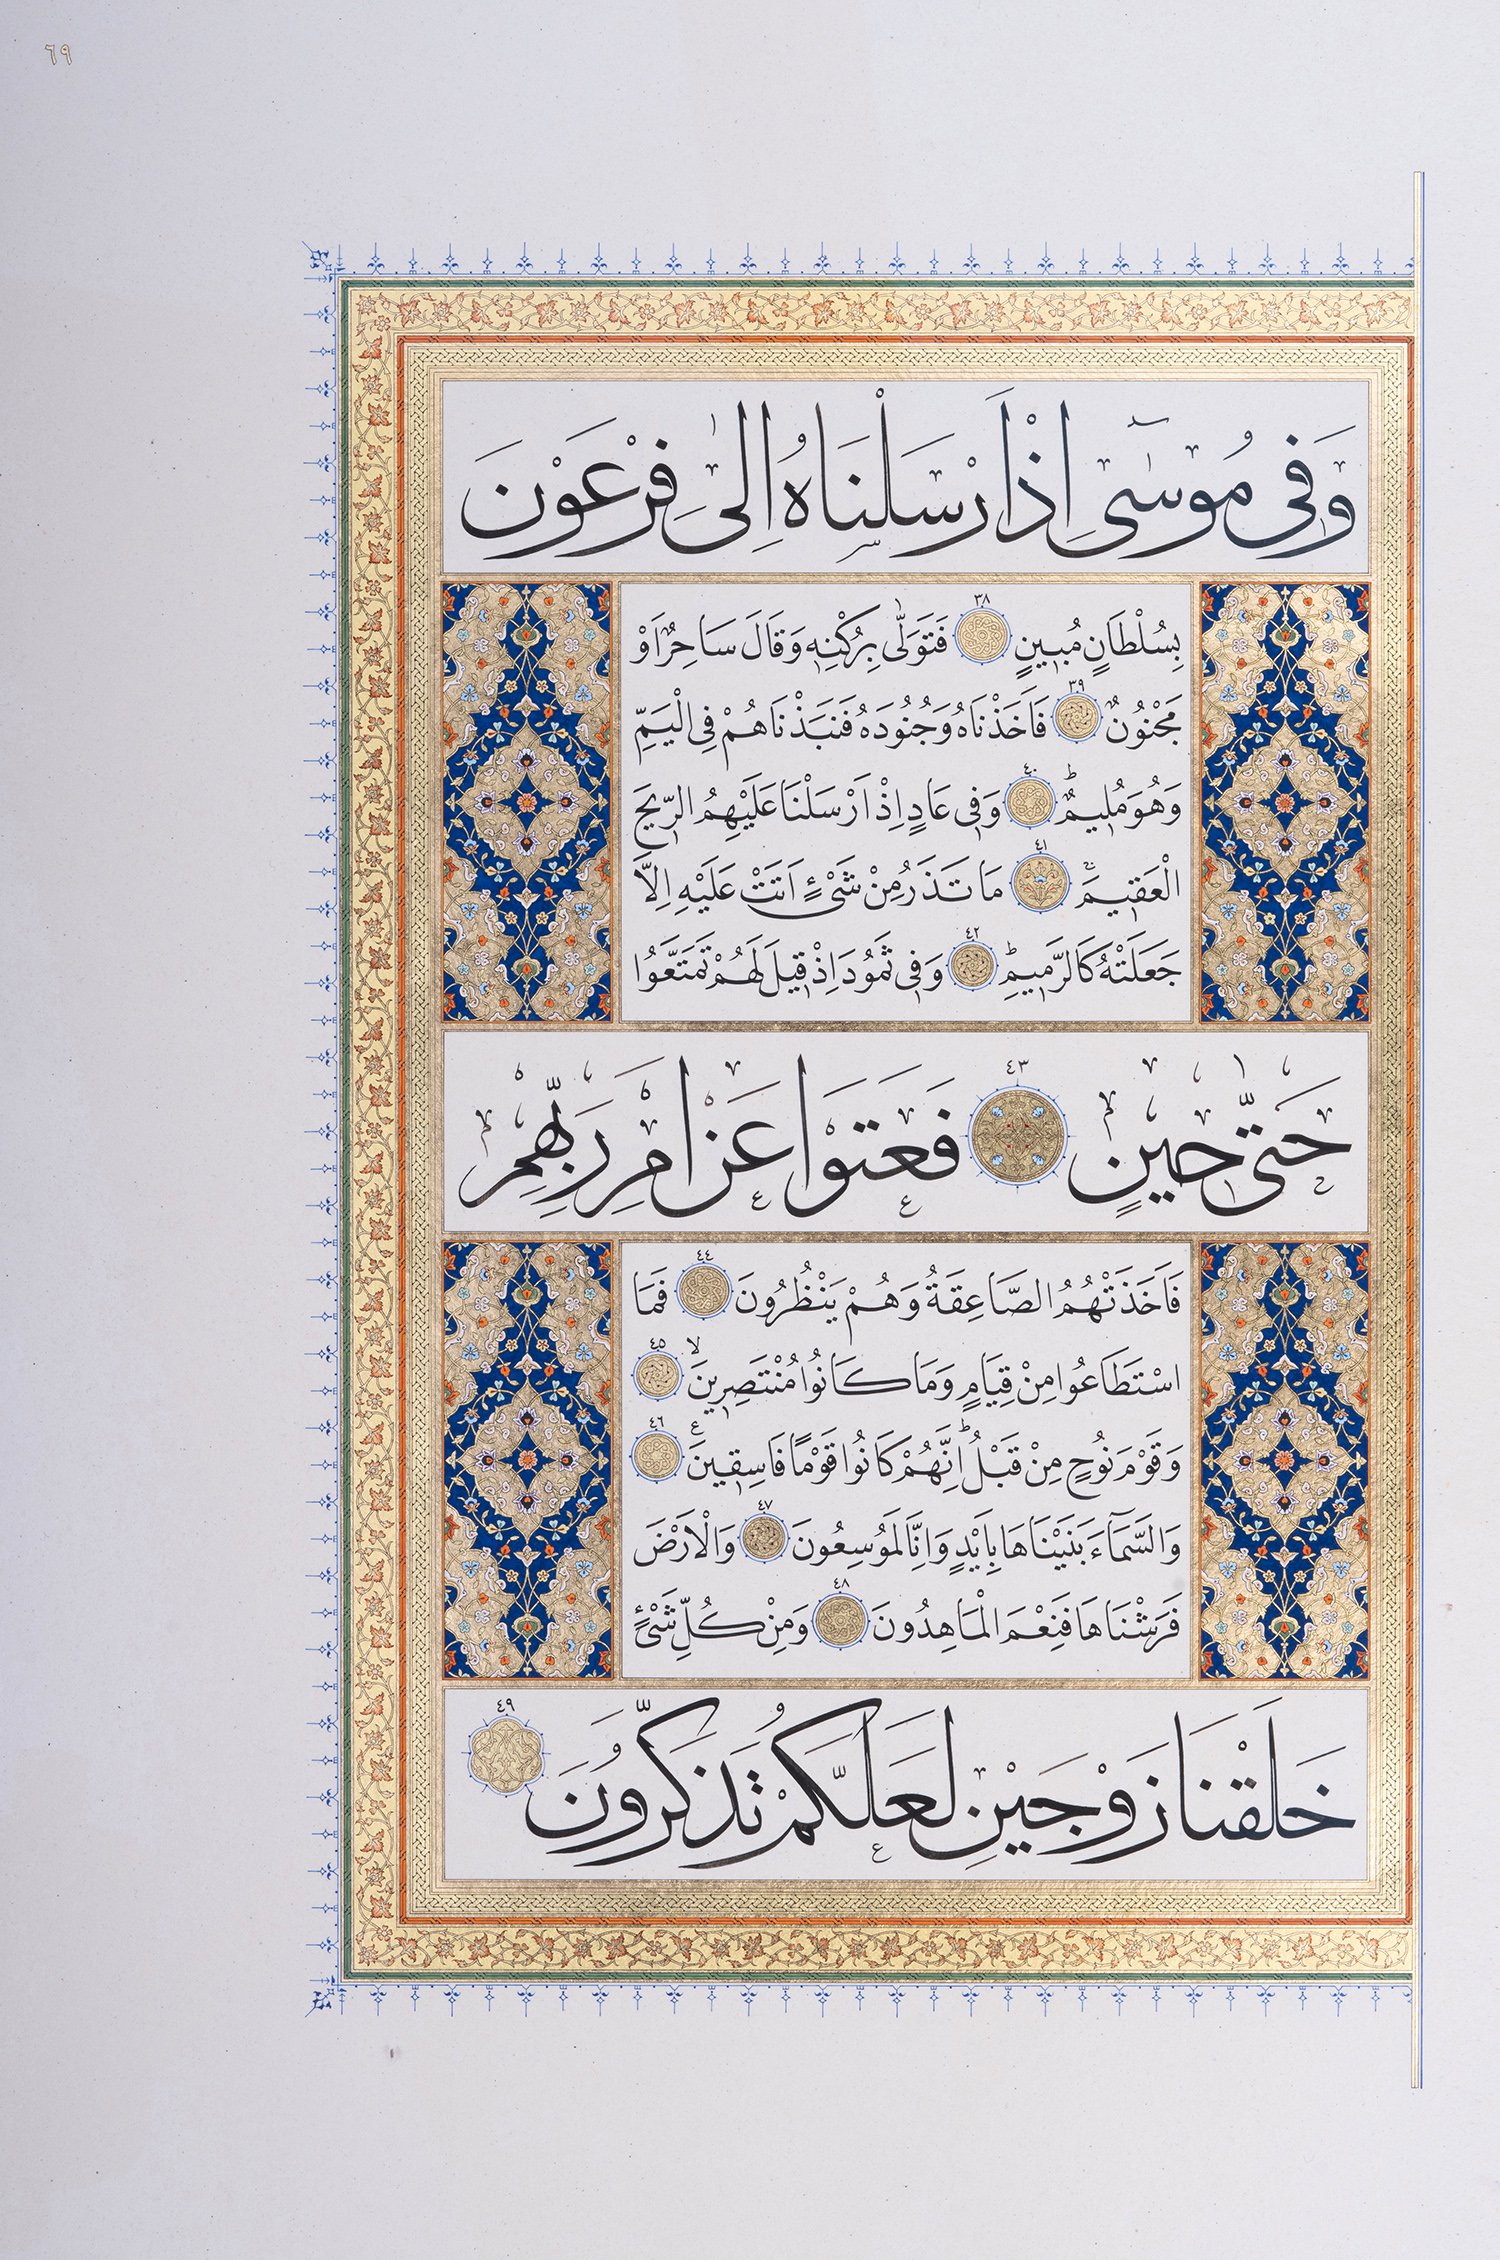 ٦٩
وَفٖي مُوسٰٓى اِذْ اَرْسَلْنَاهُ اِلٰى فِرْعَوْنَ
بِسُلْطَانٍ مُبٖينٍ ٣٨ فَتَوَلّٰى بِرُكْنِهٖ وَقَالَ سَاحِرٌ اَوْ
مَجْنُونٌ ٣٩ فَاَخَذْنَاهُ وَجُنُودَهُ فَنَبَذْنَاهُمْ فِي الْيَمِّ
وَهُوَ مُلٖيمٌ ؕ ٤٠ وَفٖي عَادٍ اِذْ اَرْسَلْنَا عَلَيْهِمُ الرّٖيحَ
الْعَقٖيمَ ٤١ مَا تَذَرُ مِنْ شَيْءٍ اَتَتْ عَلَيْهِ اِلَّا
جَعَلَتْهُ كَالرَّمٖيمِ ؕ ٤٢ وَفٖي ثَمُودَ اِذْ قٖيلَ لَهُمْ تَمَتَّعُوا
حَتّٰى حٖينٍ ٤٣ فَعَتَوْا عَنْ اَمْرِ رَبِّهِمْ
فَاَخَذَتْهُمُ الصَّاعِقَةُ وَهُمْ يَنْظُرُونَ ٤٤ فَمَا
اسْتَطَاعُوا مِنْ قِيَامٍ وَمَا كَانُوا مُنْتَصِرٖينَ ۙ ٤٥
وَقَوْمَ نُوحٍ مِنْ قَبْلُ ؕ اِنَّهُمْ كَانُوا قَوْمًا فَاسِقٖينَ ع ٤٦
وَالسَّمَٓاءَ بَنَيْنَاهَا بِاَيْدٍ وَاِنَّا لَمُوسِعُونَ ٤٧ وَالْاَرْضَ
فَرَشْنَاهَا فَنِعْمَ الْمَاهِدُونَ ٤٨ وَمِنْ كُلِّ شَيْءٍ
خَلَقْنَا زَوْجَيْنِ لَعَلَّكُمْ تَذَكَّرُونَ ٤٩